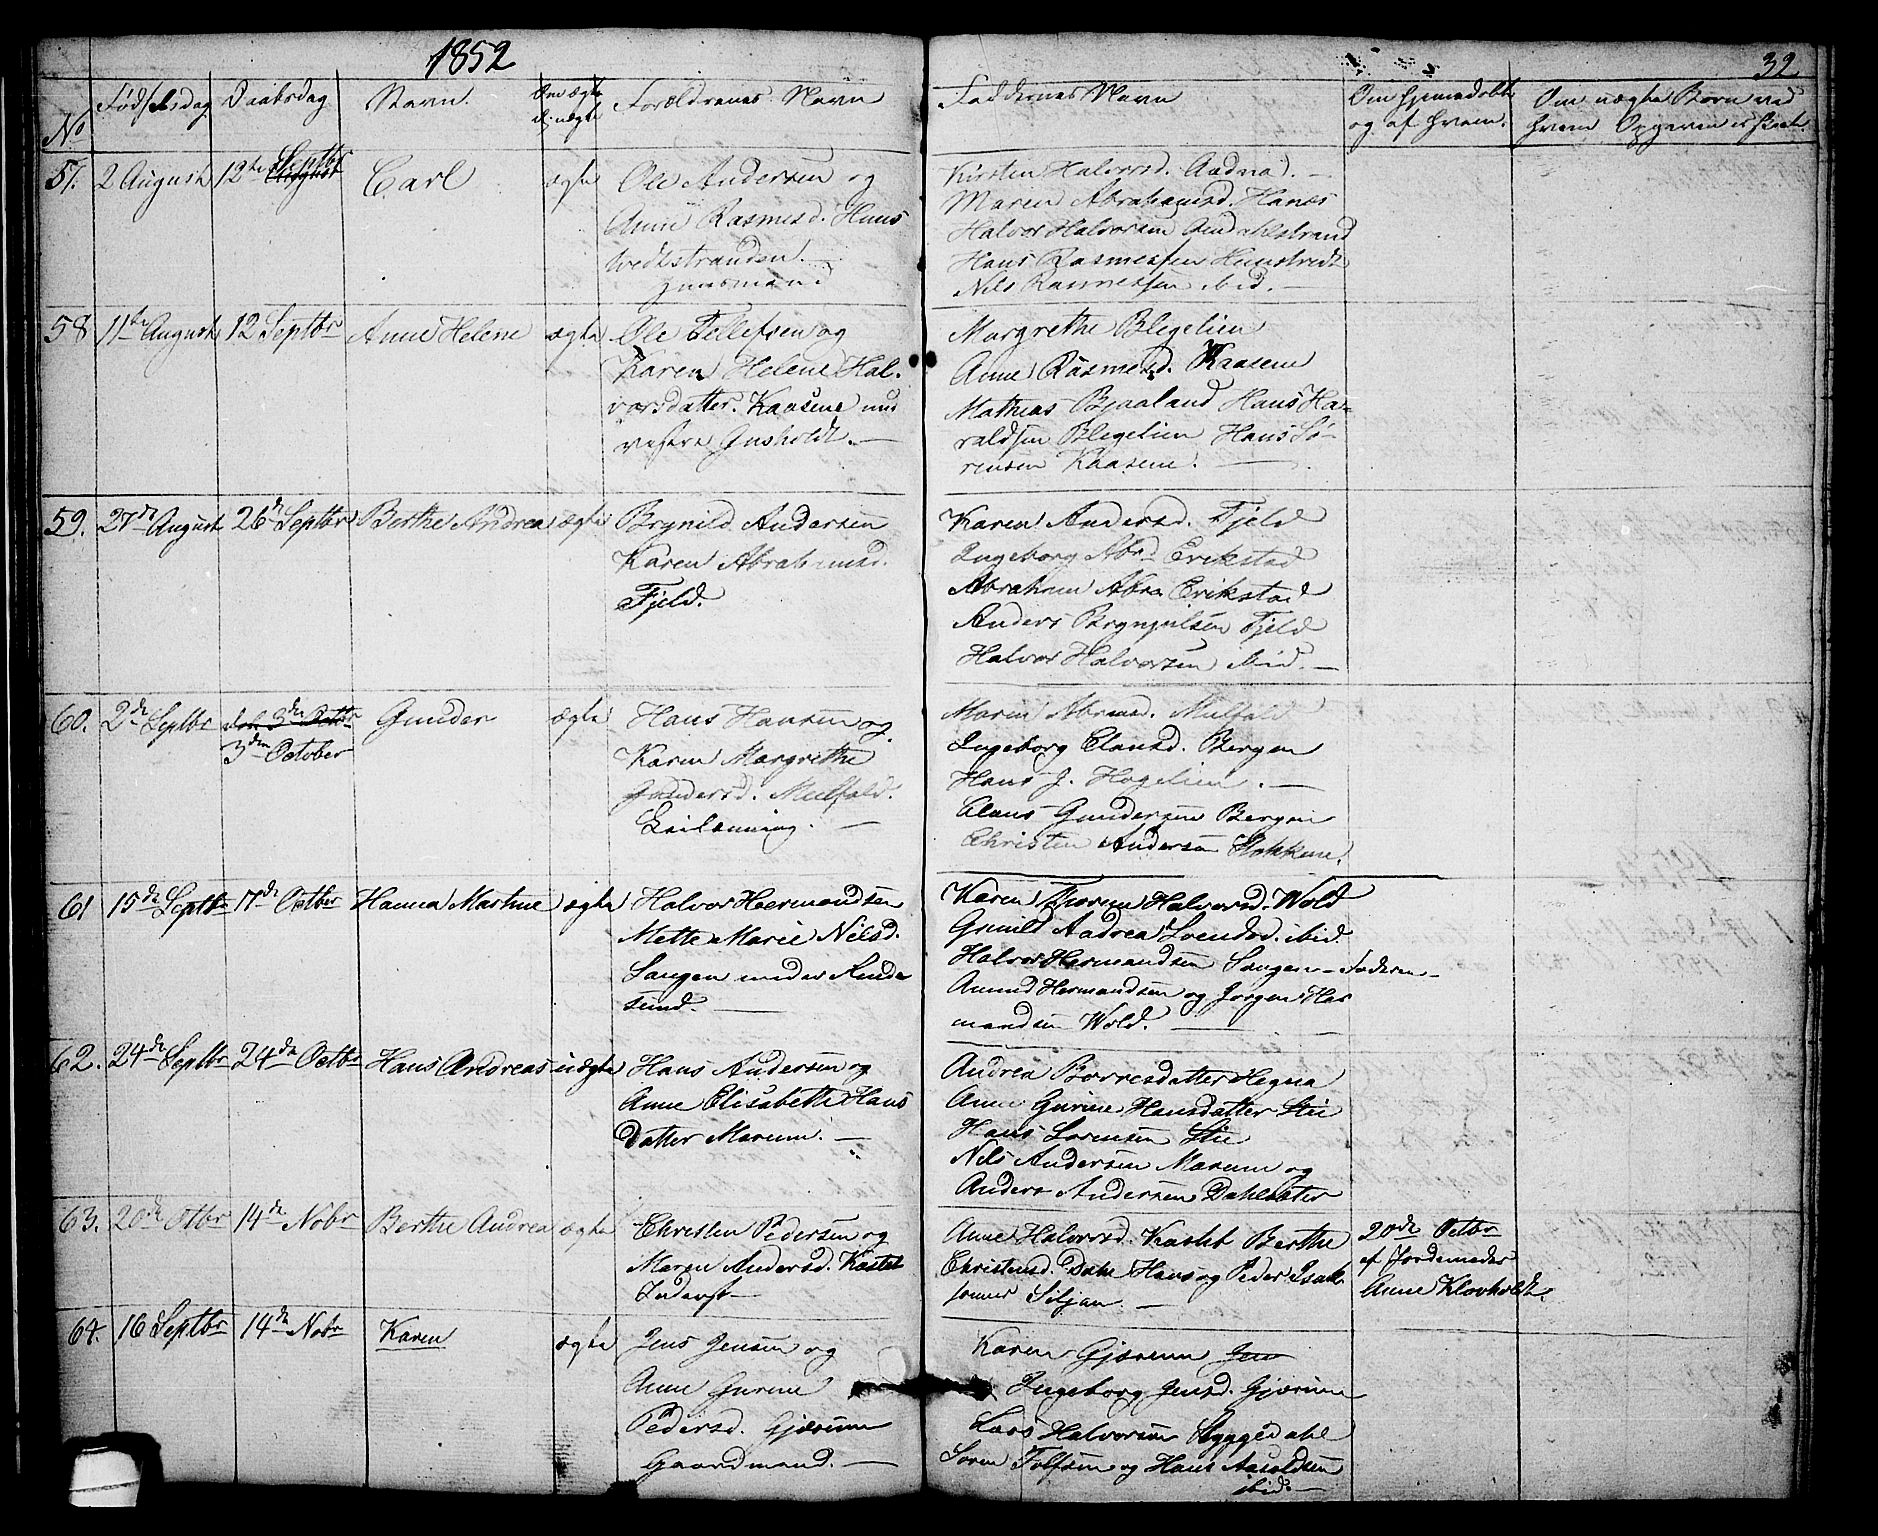 1852
32
No
Fødselsdag
Daabsdag
Navn.
Om ægte
ell. uægte
Forældrenes Navn
Faddernes Navn
Om hjemmedøbt
og af hvem.
Om uægte Børn ved
hvem Opgaven er skeet.
57. 2 August 12te Septbr August Carl ægte
Ole Andersen og
Anne Rasmusd. Huus
vedtstranden.
Huusmand
Kirsten Halvorsd. Aadna.
Maren Abrahamsd. Hanes
Halvor Halvorsen
Hans Rasmussen Hunstvedt
Nils Rasmussen ibid.
58 11te August 12 Septbr Anne Helene ægte
Ole Tellefsen og
Karen Helene Hal-
vorsdatter. Kaasene
vestre Gusholdt.
Margrethe Blegelien
Anne Rasmusd. Kaasene
Mathias Bjaaland Hans Ha-
raldsen Blegelien Hans Sø-
rensen Kaasene.
59. 27de August 26de Septbr Berthe Andrea ægte
Brynild Andersen
Karen Abrahamsd.
Fjeld.
Karen Andersd. Fjeld
Ingeborg Abrd Erikstad
Abraham Abra Erikstad
Anders Brynjulsen Fjeld
Halvor Halvorsen ibid.
60. 2de Septbr 3de Octbr
3den October
Gunder ægte
Hans Hansen og
Karen Margrethe
Gundersd. Mulfald.
Leilænning.
Maren Abrmd. Mulfald
Ingeborg Clausd. Bergen
Hans J. Hogelien.
Claus Gundersen Bergen
Christen Andersen Stokken.
61 15de Septbr 17de Octbr Hanna Martine ægte
Halvor Hermandsen
Mette Marie Nilsd.
Langen under Aade
sund.
Karen Thorine Halvorsd. Wold
Gunild Andrea Svendsd. ibid.
Halvor Hermandsen Langen Faderen
Amund Hermandsen og Jørgen Her
mandsen Wold.
62. 24de Septbr 24de Octbr Hans Andreas uægte
Hans Andersen og
Anne Elisabeth Hans
Datter Marum.
Andrea Borresdatter Hegna
Anne Gurine Hansdatter Stie
Hans Sørensen Stie
Nils Andersen Marum og
Anders Andersen Dahlsæter
63. 20de Otbr 14de Nobr Berthe Andrea ægte
Christen Pedersen og
Maren Andersd. Kastet
Inderst
Anne Halvorsd. Kastet Berthe
Christensd. Dahe Hans og Peder Isak-
sønner Siljan.
20de Octbr
af Jordemoder
Anne Klovholdt.
64. 16 Septbr 14de Nobr Karen ægte
Jens Jensen og
Anne Gurine
Pedersd. Gjærum
Gaardmand.
Karen Gjærum Jen
Ingeborg Jensd. Gjærum
Lars Halvorsen Byggedahl
Søren Tolfsen og Hans Aaroldsen
ibid.